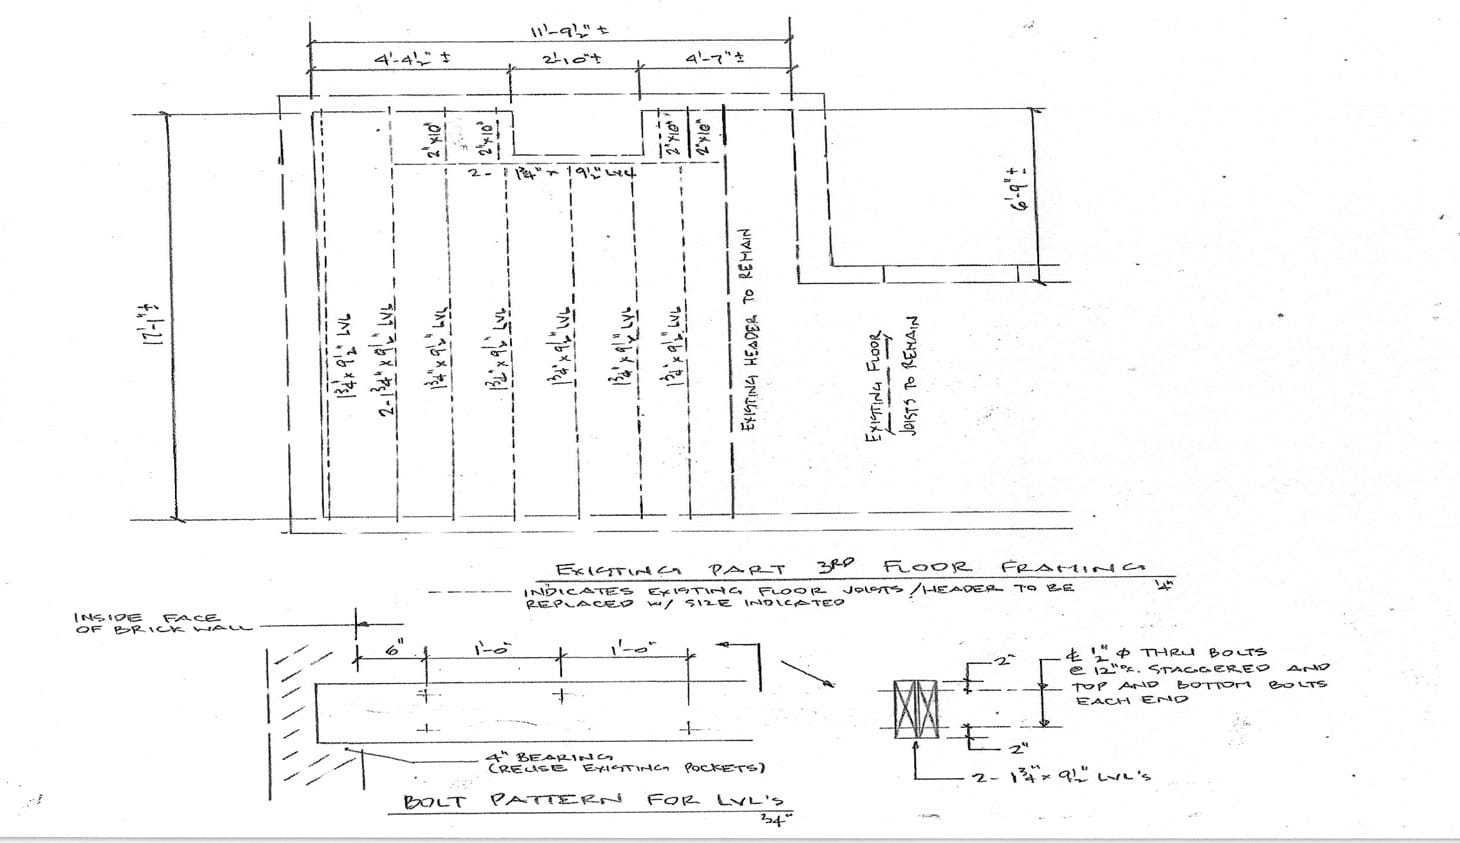 11'-9½" ±
4'-4½" ±
2'-10" ±
4'-7" ±
2"x10"
2"x10"
2"x10"
2"x10"
2- 1¾" x 9½" LVL
17'-1" ±
6'-9" ±
1¾" x 9½" LVL
2-1¾" x 9½" LVL
1¾" x 9½" LVL
1¾" x 9½" LVL
1¾" x 9½" LVL
1¾" x 9½" LVL
1¾" x 9½" LVL
EXISTING HEADER TO REMAIN
EXISTING FLOOR
JOISTS TO REMAIN
EXISTING PART 3RD FLOOR FRAMING
¼"
INDICATES EXISTING FLOOR JOISTS/HEADER TO BE
REPLACED W/ SIZE INDICATED
INSIDE FACE
OF BRICK WALL
6"
1'-0"
1'-0"
4" BEARING
(REUSE EXISTING POCKETS)
BOLT PATTERN FOR LVL'S
¾"
2"
2"
℄ ½" Φ THRU BOLTS
@ 12" OC. STAGGERED AND
TOP AND BOTTOM BOLTS
EACH END
2- 1¾" x 9½" LVL'S